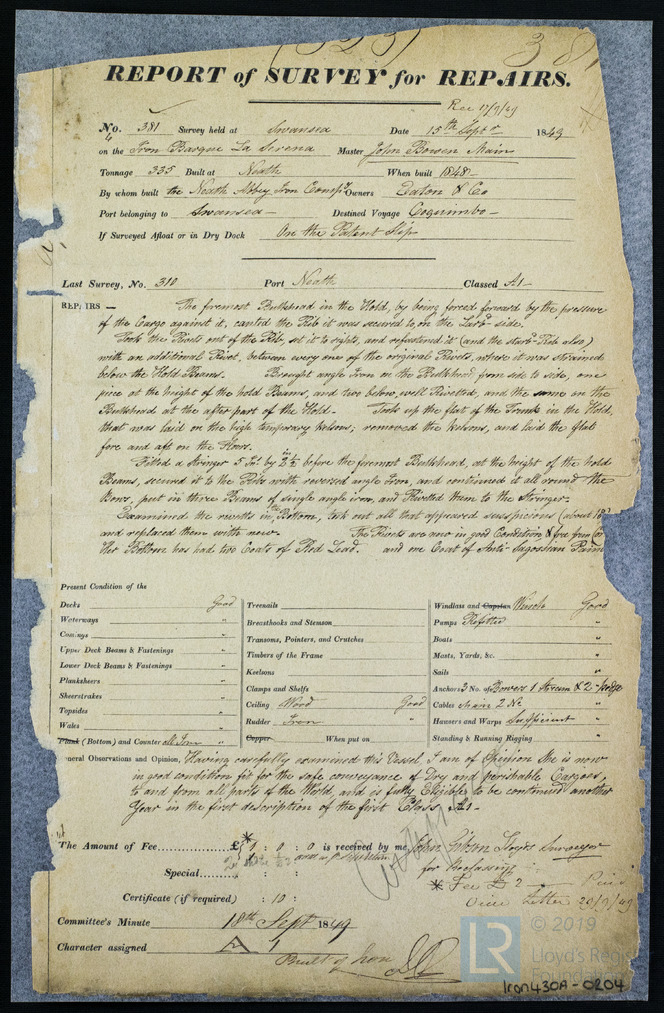 (323) 381
REPORT of SURVEY for REPAIRS.
Rec 17/9/49
No. 381 Survey held at Swansea Date 15th Septr 1849
on the Iron Barque La Serena Master John Bowen Main
Tonnage 335 Built at Neath When built 1848
By whom built the Neath Abbey Iron Compy Owners Eaton & Co
Port belonging to Swansea Destined Voyage Coquimbo
If Surveyed Afloat or in Dry Dock On the Patent Slip
Last Survey, No. 310 Port Neath Classed A1
REPAIRS — The foremost Bulkhead in the Hold, by being forced forward by the pressure
of the Cargo against it, canted the Rib it was secured to, on the Larbd side.
Took the Rivets out of the Rib, set it to rights, and refastened it (and the starbd Rib also)
with an additional Rivet, between every one of the original Rivets, where it was strained
below the Hold Beams. Brought angle Iron on the Bulkhead, from side to side, one
piece at the height of the hold Beams, and two below, well Rivetted, and the same on the
Bulkhead at the after part of the Hold. Took up the flat of the Trunk in the Hold,
that was laid on the high temporary kelsons; removed the kelsons, and laid the flat
fore and aft on the floors.
Fitted a Stringer 5 In. by 2½ In before the foremost Bulkhead, at the height of the hold
Beams, secured it to the Ribs with reversed angle Iron, and continued it all round the
Bows, put in three Beams of single angle iron, and Rivetted them to the Stringer.
Examined the revetts in the Bottom, took out all that appeared susspicious (about
and replaced them with new. The Rivets are now in good Condition & free from
Her Bottom has had two Coats of Red Lead. and one Coat of Anti-
Present Condition of the
Decks Good Treenails Windlass and Capstan Winch Good
Waterways " Breasthooks and Stemson Pumps Refitted "
Comings " Transoms, Pointers, and Crutches Boats "
Upper Deck Beams & Fastenings " Timbers of the Frame Masts, Yards, &c. "
Lower Deck Beams & Fastenings " Keelsons Sails "
Planksheers " Clamps and Shelfs Anchors 3 No. of Bowers 1 Stream & 2 Kedge
Sheerstrakes " Ceiling Wood Good Cables chain 2 No "
Topsides " Rudder Iron " Hawsers and Warps Sufficient "
Wales " Copper When put on Standing & Running Rigging "
Plank (Bottom) and Counter all Iron "
General Observations and Opinion, Having carefully examined this Vessel, I am of Opinion She is now
in good condition fit for the safe conveyance of Dry and perishable Cargoes,
to and from all parts of the World, and is fully Eligible to be continued another
Year in the first description of the first Class, A1
The Amount of Fee £ * 1 : 0 : 0 is received by me John Gibson Lloyds Surveyor
Special : : for Reclassing
* Fee £ 2 Paid
Certificate (if required) : 10 : Vide Letter 20/9/49
Committee's Minute 18th Sept 1849
Character assigned A 1
Built of Iron
© 2019
LR
Lloyd's Register
Foundation
Iron430A - 0204